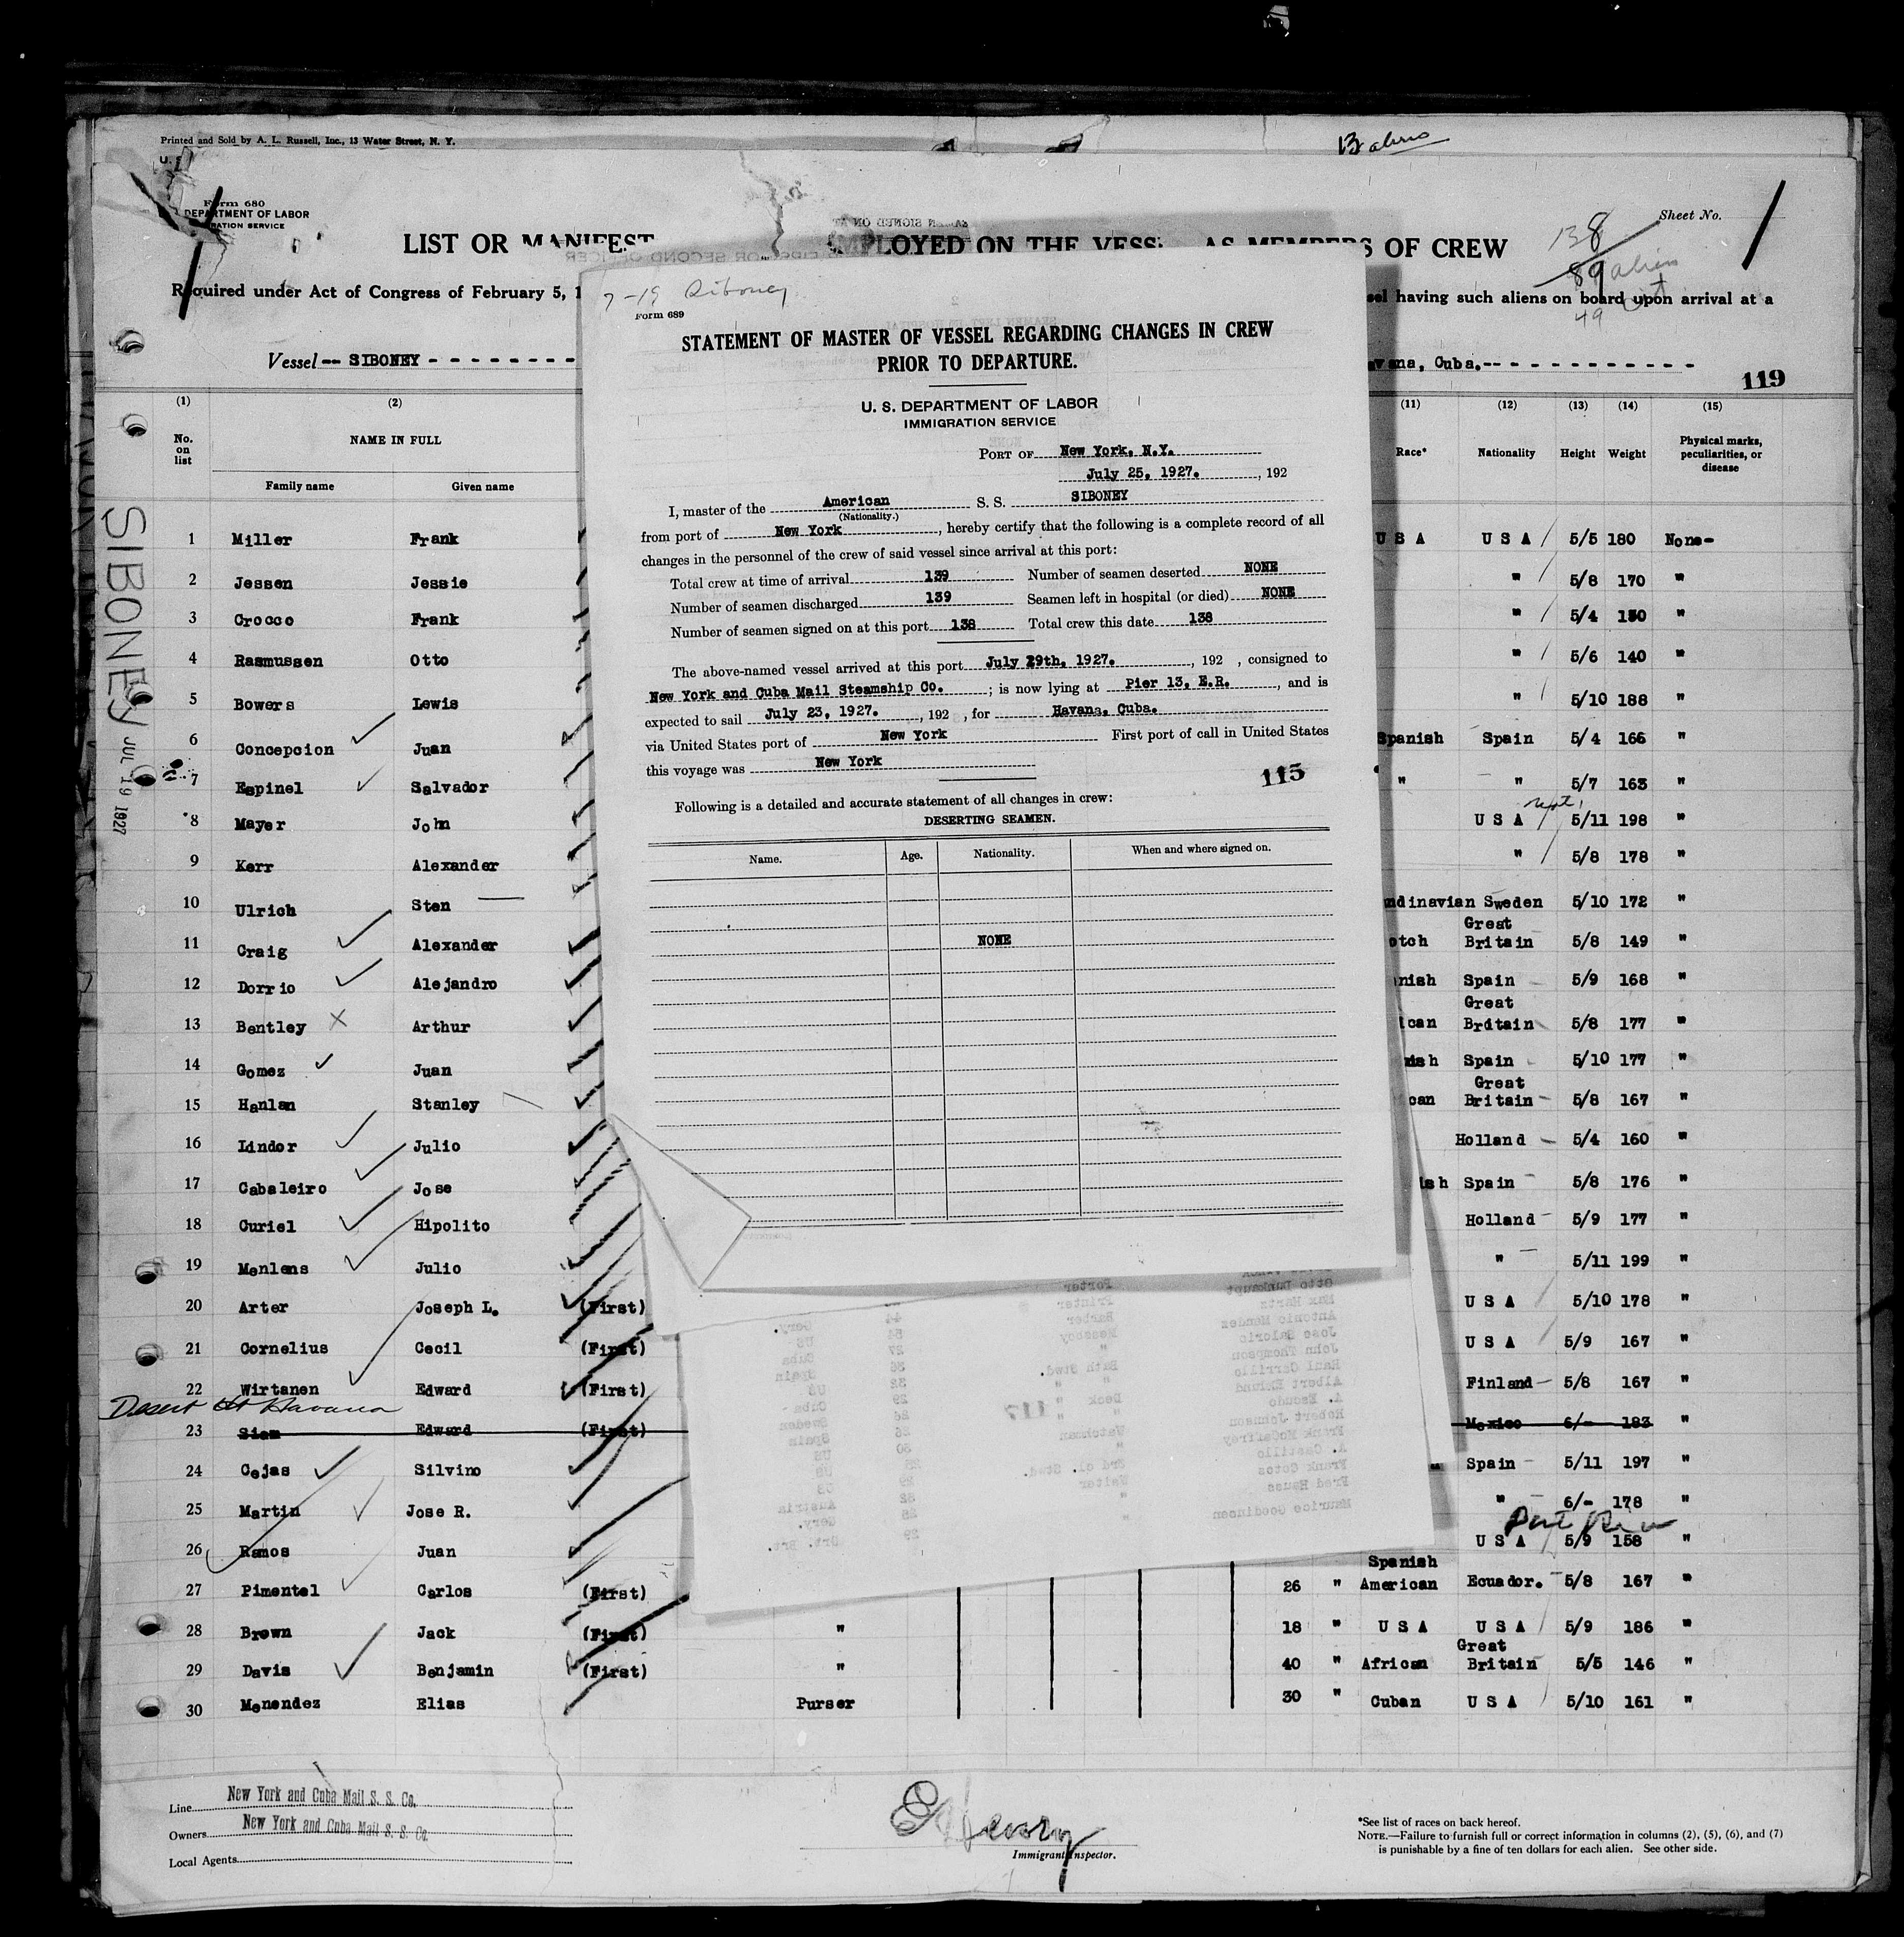 Printed and Sold by A. L. Russell, Inc., 13 Water Street, N. Y.
Form 680
DEPARTMENT OF LABOR
LIST OR MANIFEST EMPLOYED ON THE VESSEL AS MEMBERS OF CREW
138
Sheet No.
1
89 aliens
49
Required under Act of Congress of February 5, 1
having such aliens on board upon arrival at a
Vessel -- SIBONEY
Havana, Cuba.
119
(1) (2) (11) (12) (13) (14) (15)
No. on list NAME IN FULL Race* Nationality Height Weight Physical marks, peculiarities, or disease
Family name Given name
SIBONEY JUL 19 1927
1 Miller Frank U S A U S A 5/5 180 None-
2 Jessen Jessie " 5/8 170 "
3 Crocco Frank " 5/4 150 "
4 Rasmussen Otto " 5/6 140 "
5 Bowers Lewis " 5/10 188 "
6 Concepcion Juan Spanish Spain 5/4 166 "
7 Espinel Salvador " " 5/7 163 "
8 Mayer John U S A 5/11 198 "
9 Kerr Alexander " 5/8 178 "
10 Ulrich Sten ndinavian Sweden 5/10 172 "
11 Craig Alexander otch Great Britain 5/8 149 "
12 Dorrio Alejandro nish Spain 5/9 168 "
13 Bentley Arthur ican Great Brdtain 5/8 177 "
14 Gomez Juan nish Spain 5/10 177 "
15 Hanlan Stanley can Great Britain 5/8 167 "
16 Lindor Julio Holland 5/4 160 "
17 Cabaleiro Jose ish Spain 5/8 176 "
18 Curiel Hipolito Holland 5/9 177 "
19 Menlens Julio " 5/11 199 "
20 Arter Joseph L. (First) U S A 5/10 178 "
21 Cornelius Cecil (First) U S A 5/9 167 "
22 Wirtanen Edward (First) Finland 5/8 167 "
Desert at Havana
23 Siem Edward (First) Mexico 6/- 183 "
24 Cejas Silvino Spain 5/11 197 "
25 Martin Jose R. " 6/- 178 "
26 Ramos Juan U S A 5/9 158 "
27 Pimentel Carlos (First) 26 " Spanish American Ecuador. 5/8 167 "
28 Brown Jack (First) " 18 " U S A U S A 5/9 186 "
29 Davis Benjamin (First) " 40 " African Great Britain 5/5 146 "
30 Menendez Elias Purser 30 " Cuban U S A 5/10 161 "
Line New York and Cuba Mail S. S. Co.
Owners New York and Cuba Mail S. S. Co.
Local Agents
Immigrant Inspector.
*See list of races on back hereof.
NOTE.—Failure to furnish full or correct information in columns (2), (5), (6), and (7)
is punishable by a fine of ten dollars for each alien. See other side.
7-19 Siboney
Form 689
STATEMENT OF MASTER OF VESSEL REGARDING CHANGES IN CREW
PRIOR TO DEPARTURE.
U. S. DEPARTMENT OF LABOR
IMMIGRATION SERVICE
PORT OF New York, N.Y.
July 25, 1927. , 192
I, master of the American S. S. SIBONEY
(Nationality.)
from port of New York , hereby certify that the following is a complete record of all
changes in the personnel of the crew of said vessel since arrival at this port:
Total crew at time of arrival 139 Number of seamen deserted NONE
Number of seamen discharged 139 Seamen left in hospital (or died) NONE
Number of seamen signed on at this port 138 Total crew this date 138
The above-named vessel arrived at this port July 29th, 1927. , 192 , consigned to
New York and Cuba Mail Steamship Co. ; is now lying at Pier 13, E.R. , and is
expected to sail July 23, 1927. , 192 , for Havana, Cuba.
via United States port of New York First port of call in United States
this voyage was New York
115
Following is a detailed and accurate statement of all changes in crew:
DESERTING SEAMEN.
Name. Age. Nationality. When and where signed on.
NONE